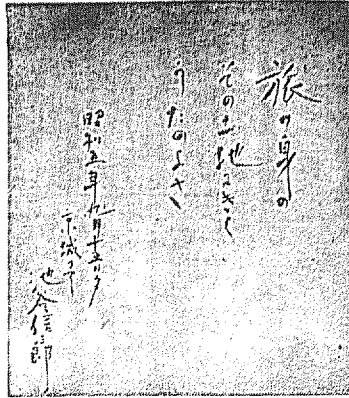 旅の身の
その土地にきく
うたのよさ
昭和五年九月十五日夕
京城にて
池谷信三郎